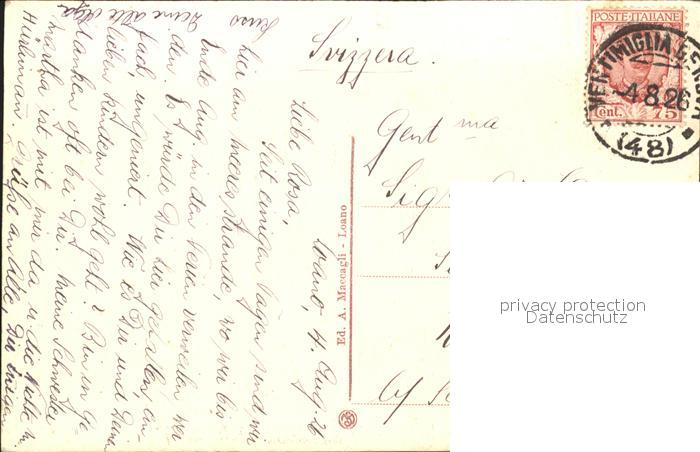 Svizzera.
POSTE·ITALIANE
VENTIMIGLIA
-4.8.26
Cent. 75
(48)
Gent ma
Sig
Ed. A. Maccagli - Loano
privacy protection
Datenschutz
Loano, 4. Aug. 26
Liebe Rosa,
Seit einigen Tagen sind wir
hier am Meeresstrande, wo wir bis
Ende Aug. in den Ferien verweilen wer
den. Es würde Dir hier gefallen, ein-
fach, ungeniert. Wie es Dir und Deinen
lieben Kindern wohl geht? Bin in Ge-
danken oft bei Dir. Meine Schwester
Martha ist mit mir da u. die Nichte v.
Grüsse an Alle, Dir innigen
Kuss
Deine alte Olga